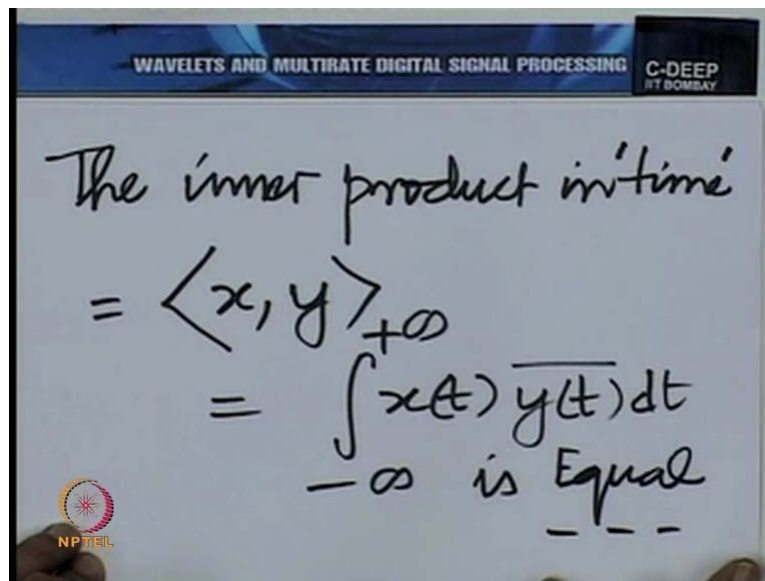 WAVELETS AND MULTIRATE DIGITAL SIGNAL PROCESSING
C-DEEP
IIT BOMBAY
The inner product in 'time'
= <x, y>
+∞
= ∫ x(t) \overline{y(t)} dt
-∞ is Equal
- - -
NPTEL